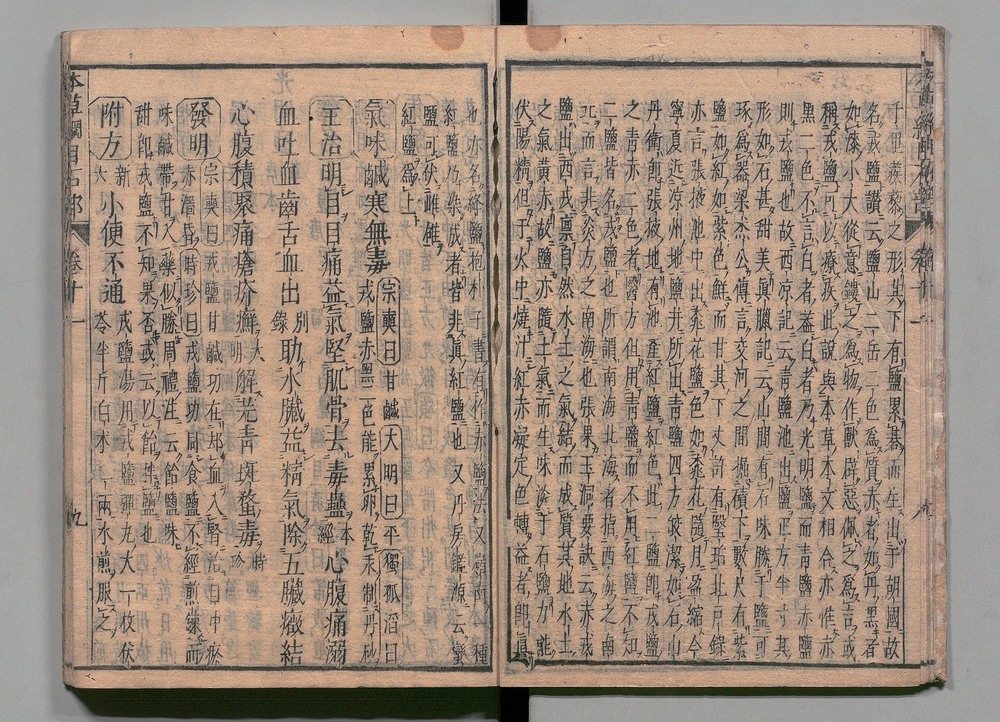 千里蒺藜之形其下有鹽累碁而生出乎胡國故
名戎鹽讚云鹽山二岳二色為質赤者如丹黑者
如漆小大從意鏤之為物作獸辟惡佩之為吉或
稱戎鹽可以療疾此說與本草本文相合亦惟赤
黑二色不言白者蓋白者乃光明鹽而青鹽赤鹽
則戎鹽也故西涼記云青鹽池出鹽正方半寸其
形如石甚甜美真臘記云山間有石味勝于鹽可
琢為器梁杰公傳言交河之間掘磧下數尺有紫
鹽如紅如紫色鮮而甘其下丈許有瑿珀北戶錄
亦言張掖池中出桃花鹽色如桃花隨月盈縮今
寧夏近涼州地鹽井所出青鹽四方皎潔如石山
丹衛即張掖地有池產紅鹽紅色此二鹽即戎鹽
之青赤二色者醫方但用青鹽而不用紅鹽不知
二鹽皆名戎鹽也所謂南海北海者指西海之南
北而言非炎方之南海也張果玉洞要訣云赤戎
鹽出西戎稟自然水土之氣結而成質其地水土
之氣黃赤故鹽亦隨土氣而生味淡于石鹽力能
伏陽精但于火中燒汁紅赤凝定色轉益者即真
也亦名絳鹽抱朴子書有作赤鹽法又嶺南一種
紅鹽乃染成者皆非真紅鹽也又丹房鑑源云蠻
鹽可伏雌雄
紅鹽為上
氣味鹹寒無毒宗奭曰甘鹹大明曰平獨孤滔曰
戎鹽赤黑二色能累卵乾汞制丹砂
主治明目目痛益氣堅肌骨去毒蠱本經心腹痛溺
血吐血齒舌血出別錄助水臟益精氣除五臟癥結
心腹積聚痛瘡疥癬大明解芫青斑蝥毒時珍
發明宗奭曰戎鹽甘鹹功在却血入腎治目中瘀
赤濇昏時珍曰戎鹽功同食鹽不經煎煉而
味鹹帶甘入藥似勝周禮注云飴鹽味
甜即戎鹽不知果否或云以飴拌鹽也
附方新六小便不通戎鹽湯用戎鹽彈丸大一枚茯
苓半斤白朮二兩水煎服之
本草綱目石部 卷十一 九